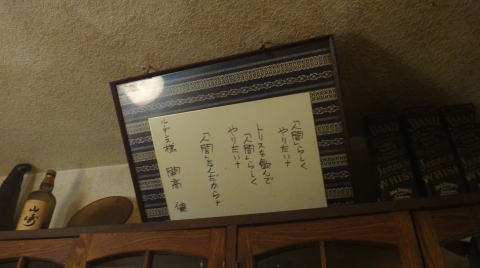 「人間」らしく
やりたいナ
トリスを飲んで
「人間」らしく
やりたいナ
「人間」なんだからナ
ルヂラ様
開高 健
山崎